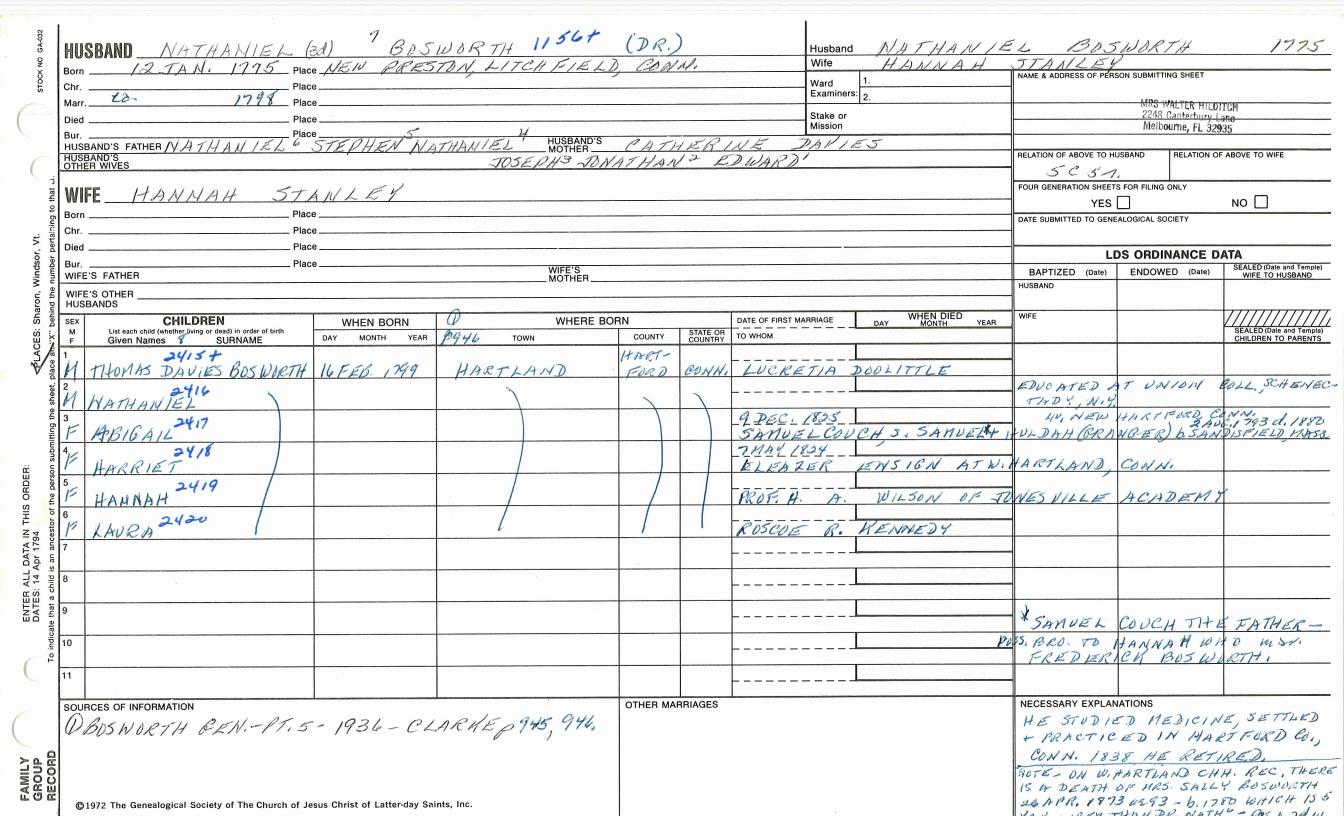 STOCK NO GA-032
HUSBAND NATHANIEL (3d) 7 BOSWORTH 1156+ (DR.)
Born 12 JAN. 1775 Place NEW PRESTON, LITCHFIELD, CONN.
Chr. Place
Marr. ca. 1798 Place
Died Place
Bur. Place
HUSBAND'S FATHER NATHANIEL 6 STEPHEN 5 NATHANIEL 4 HUSBAND'S MOTHER CATHERINE DAVIES
HUSBAND'S OTHER WIVES JOSEPH 3 JONATHAN 2 EDWARD 1
Husband NATHANIEL BOSWORTH 1775
Wife HANNAH STANLEY
Ward Examiners: 1.
2.
Stake or Mission
NAME & ADDRESS OF PERSON SUBMITTING SHEET
MRS WALTER HILDITCH
2248 Canterbury Lane
Melbourne, FL 32935
RELATION OF ABOVE TO HUSBAND RELATION OF ABOVE TO WIFE
FOUR GENERATION SHEETS FOR FILING ONLY
YES NO
DATE SUBMITTED TO GENEALOGICAL SOCIETY
WIFE HANNAH STANLEY
Born Place
Chr. Place
Died Place
Bur. Place
WIFE'S FATHER WIFE'S MOTHER
WIFE'S OTHER HUSBANDS
LDS ORDINANCE DATA
BAPTIZED (Date) ENDOWED (Date) SEALED (Date and Temple) WIFE TO HUSBAND
HUSBAND
WIFE
SEALED (Date and Temple) CHILDREN TO PARENTS
SEX M F
CHILDREN
List each child (whether living or dead) in order of birth
Given Names 8 SURNAME
WHEN BORN
DAY MONTH YEAR
① WHERE BORN
p946 TOWN COUNTY STATE OR COUNTRY
DATE OF FIRST MARRIAGE
TO WHOM
WHEN DIED
DAY MONTH YEAR
1 2415+ HART-
M THOMAS DAVIES BOSWORTH 16 FEB 1799 HARTLAND FORD CONN. LUCRETIA DOOLITTLE
2 2416 EDUCATED AT UNION COLL, SCHENEC-
M NATHANIEL TADY, N.Y.
3 2417 9 DEC. 1825 NEW HARTFORD CONN.
2 AUG. 1793 d. 1880
F ABIGAIL SAMUEL COUCH, s. SAMUEL* + HULDAH (GRANGER) b. SANDISFIELD, MASS
4 2418 7 MAY 1824
F HARRIET ELEAZER ENSIGN AT W. HARTLAND, CONN.
5 2419
F HANNAH PROF. H. A. WILSON OF JONESVILLE ACADEMY
6 2420
F LAURA ROSCOE R. KENNEDY
7
8
9
10
11
* SAMUEL COUCH THE FATHER —
POSS. BRO. TO HANNAH WHO md.
FREDERICK BOSWORTH.
SOURCES OF INFORMATION
① BOSWORTH GEN. - PT. 5 - 1936 - CLARKE p 945, 946.
OTHER MARRIAGES
NECESSARY EXPLANATIONS
HE STUDIED MEDICINE, SETTLED
+ PRACTICED IN HARTFORD CO.,
CONN. 1838 HE RETIRED.
NOTE - ON W. HARTLAND CHH. REC, THERE
IS A DEATH OF MRS. SALLY BOSWORTH
26 APR. 1873 ae 93 - b. 1780 WHICH IS 5
©1972 The Genealogical Society of The Church of Jesus Christ of Latter-day Saints, Inc.
PLACES: Sharon, Windsor, Vt.
ENTER ALL DATA IN THIS ORDER:
DATES: 14 Apr 1794
To indicate that a child is an ancestor of the person submitting the sheet, place an "X" behind the number pertaining to that
FAMILY GROUP RECORD